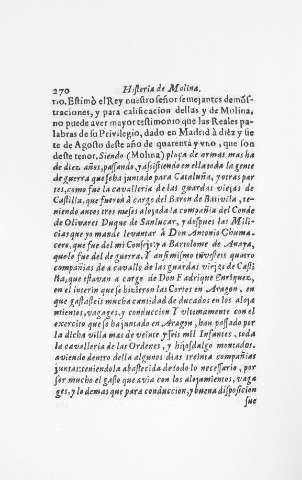 270 Historia de Molina.
rio. Estimò el Rey nuestro señor semejantes demõs-
traciones, y para calificacion dellas y de Molina,
no puede aver mayor testimonio que las Reales pa-
labras de su Privilegio, dado en Madrid à diez y sie
te de Agosto deste año de quarenta y vno, que son
deste tenor, Siendo (Molina) plaça de armas mas ha
de diez años, passando, y assistiendo en ella toda la gente
de guerra que se ha juntado para Cataluña, y otras par
tes, como fue la cavalleria de las guardas viejas de
Castilla, que fueron à cargo del Baron de Bativila, te-
niendo antes tres meses alojada la compañia del Conde
de Olivares Duque de Sanlucar, y despues las Mili-
cias que yo mande levantar à Don Antonio Chuma-
cero, que fue del mi Consejo; y a Bartolome de Anaya,
que lo fue del de guerra. Y ansimismo tuvisteis quatro
compañias de a cavallo de las guardas viejas de Casti
lla, que estavan a cargo de Don Fadrique Enriquez,
en el interin que se hizieron las Cortes en Aragon, en
que gastasteis mucha cantidad de ducados en los aloja
mientos, vagages, y conduccion Y vltimamente con el
exercito que se ha juntado en Aragon, han passado por
la dicha villa mas de veinte y seis mil Infantes, toda
la cavalleria de las Ordenes, y hijosdalgo montados,
aviendo dentro della algunos dias treinta compañias
juntas: teniendola abastecida de todo lo necessario, por
ser mucho el gasto que avia con los alojamientos, vaga
ges, y lo demas que para conduccion, y buena disposicion
fue